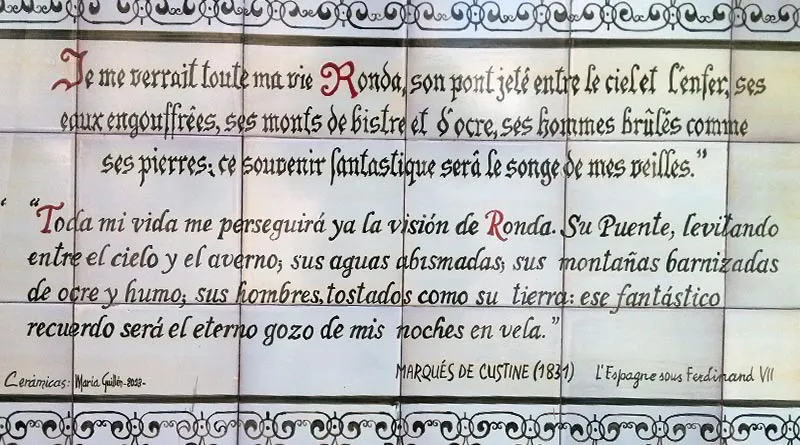 Je me verrait toute ma vie Ronda, son pont jeté entre le ciel et l'enfer, ses
eaux engouffrées, ses monts de bistre et d'ocre, ses hommes brûlés comme
ses pierres; ce souvenir fantastique será le songe de mes veilles."
"Toda mi vida me perseguirá ya la visión de Ronda. Su Puente, levitando
entre el cielo y el averno; sus aguas abismadas; sus montañas barnizadas
de ocre y humo; sus hombres, tostados como su tierra: ese fantástico
recuerdo será el eterno gozo de mis noches en vela."
MARQUÉS DE CUSTINE (1831) L'Espagne sous Ferdinand VII
Cerámicas: Maria Guillén